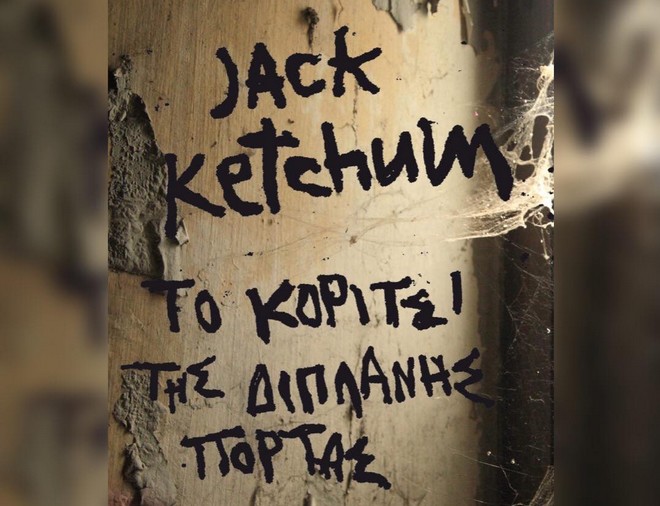 JACK
Ketchum
ΤΟ ΚΟΡΙΤΣΙ
ΤΗΣ ΔΙΠΛΑΝΗΣ
ΠΟΡΤΑΣ